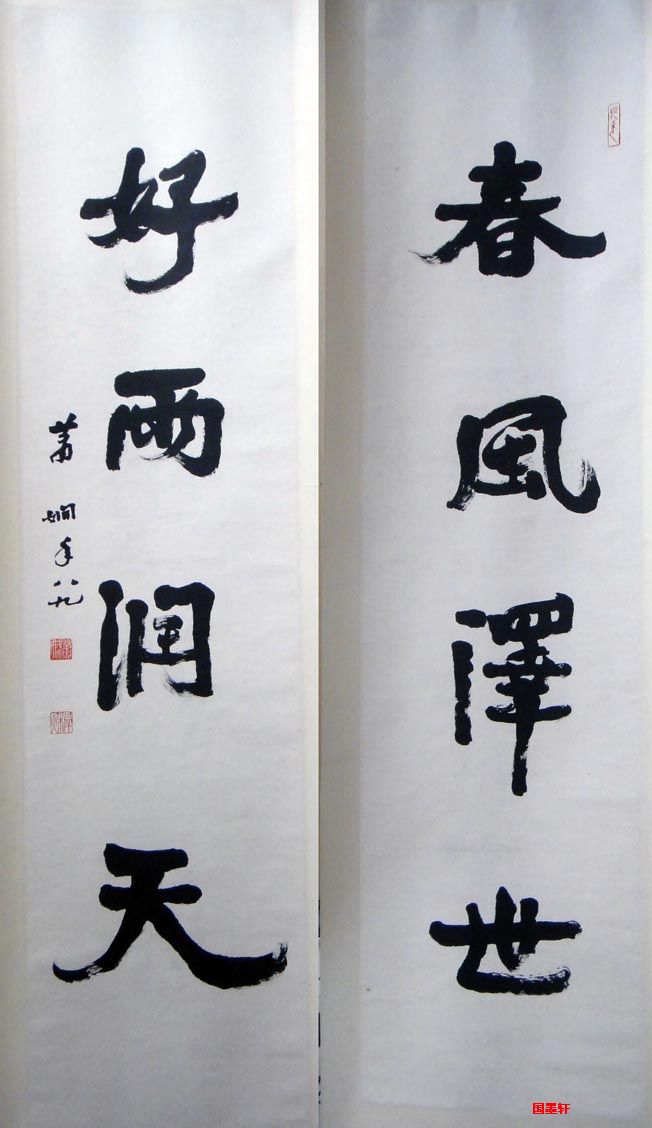 春風澤世
好雨潤天
萧娴年八九
国墨轩